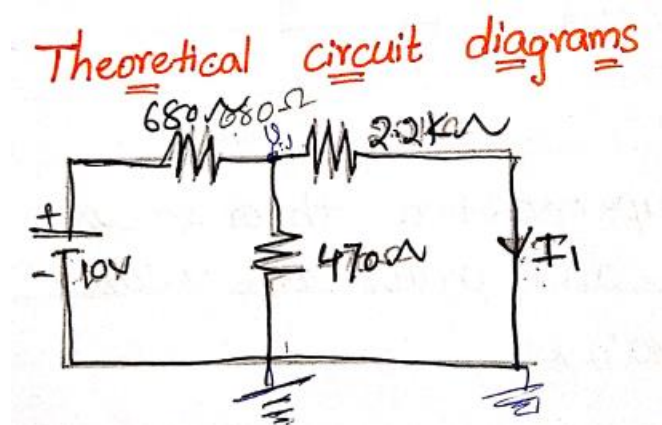 Theoretical circuit diagrams
680Ω 2.2KΩ
V1
+
- 10V
470Ω
I1